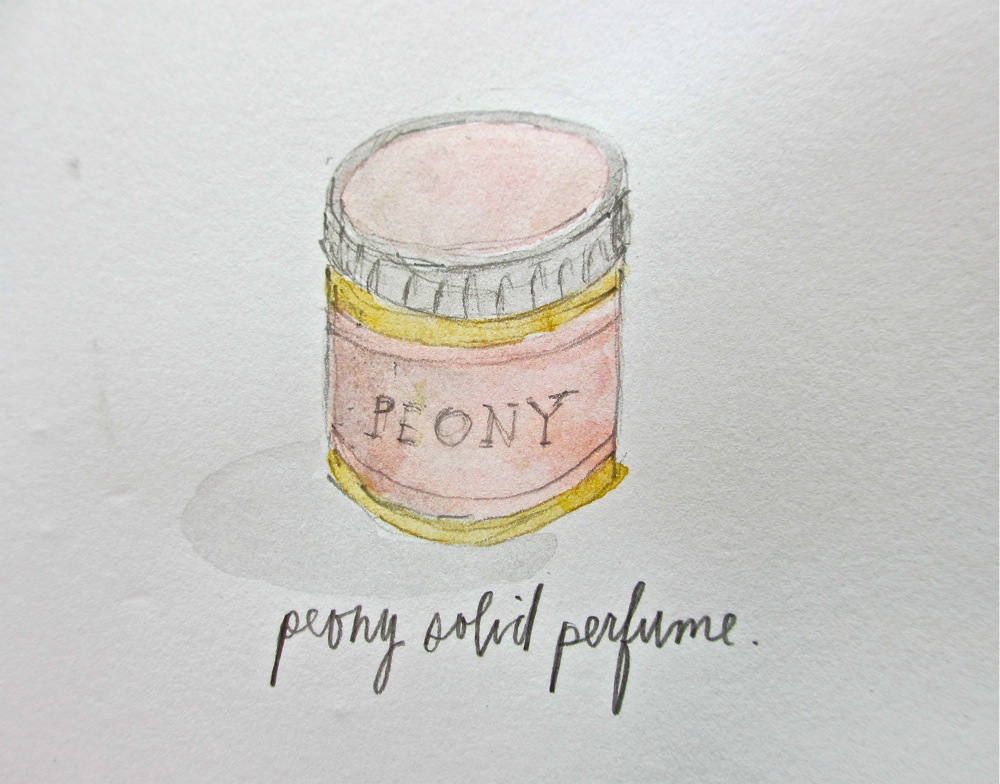 PEONY
peony solid perfume.